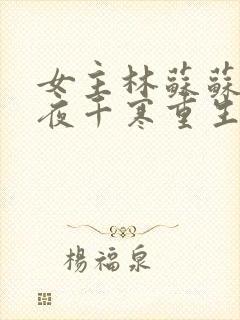 女主林蘇蘇
夜千寒重生
楊福泉